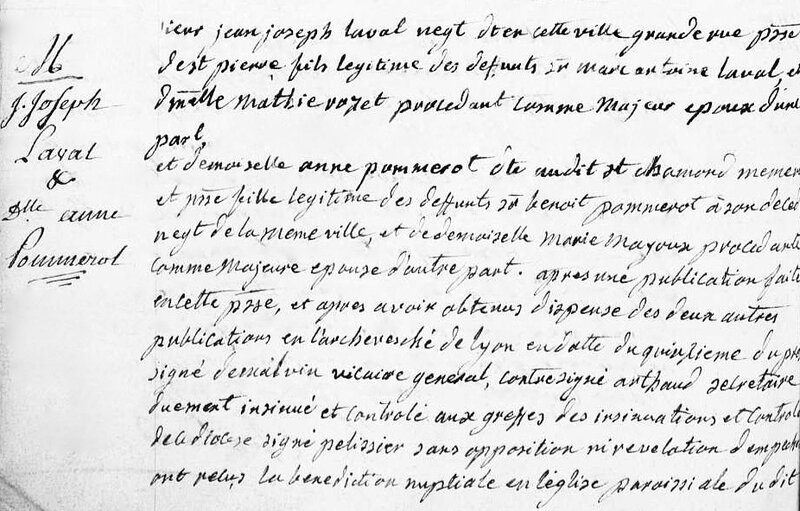 M
J. Joseph
Laval
&
Dlle anne
Pommerol
sieur jean joseph laval negt dt en cette ville grande rue psse
de st pierre fils legitime des deffunts sr marc antoine laval, et
dmelle Mathie rozet procedant comme Majeur epoux d'une
part,
et demoiselle anne pommerot dte audit st chamond meme
et psse fille legitime des deffunts sr benoit pommerot à son deced
negt de la meme ville, et de demoiselle Marie Mayoux procedante
comme Majeure epouse d'autre part. apres une publication faite
en cette psse, et apres avoir obtenus dispense des deux autres
publications en l'archevesché de lyon en datte du quinzieme du pres
signé demalvin vicaire general, contresigné arthaud secretaire
duement insinué et controlé aux greffes des insinuations et controle
de ce diocese signé pelissier sans opposition ni revelation d'empeche
ont reçus la benediction nuptiale en l'église paroissiale du dit